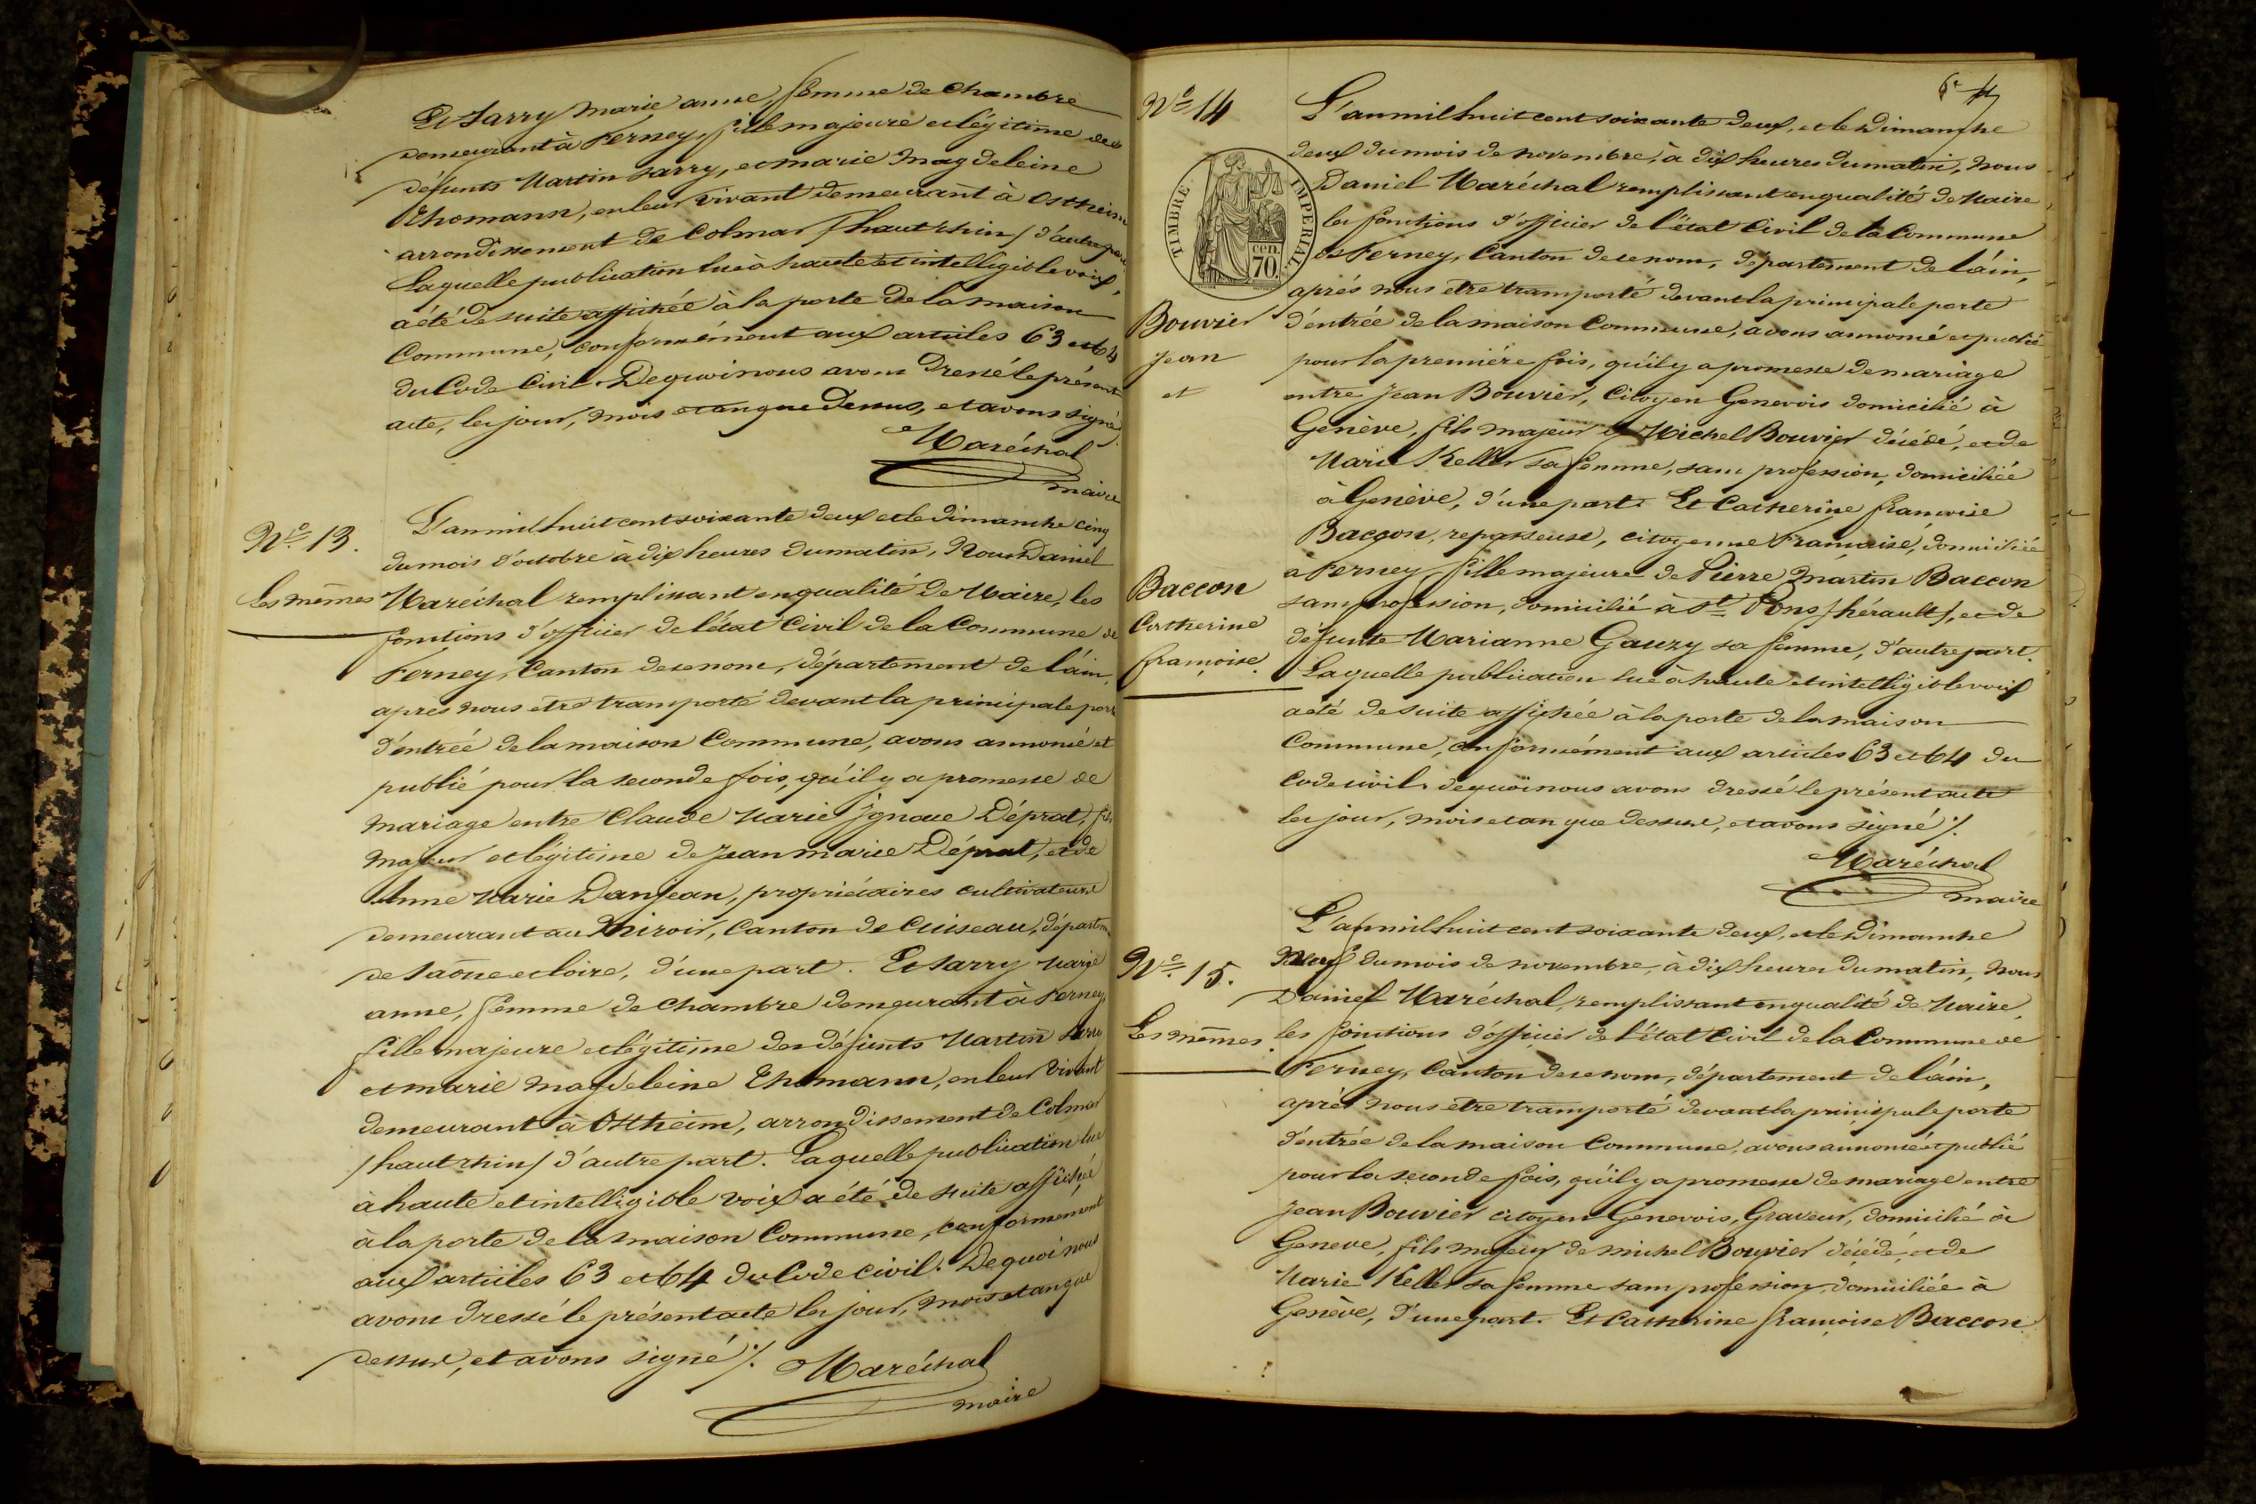 Et Sarry Marie anne, femme de Chambre
demeurant à Ferney, fille majeure et légitime des
défunts Martin Sarry, et marie Magdeleine
Ehomann, en leur vivant demeurant à Ostheim
arrondissement de Colmar /haut rhin/ d'autre part.
Laquelle publication lue à haute et intelligible voix,
a été de suite affichée à la porte de la maison
Commune, conformément aux articles 63 et 64
du Code Civil. De quoi nous avons dressé le présent
acte, les jour, mois et an que dessus, et avons signé.
Maréchal
maire
N° 13.
Les mêmes
L'an mil huit cent soixante deux et le dimanche cinq
du mois d'octobre à dix heures du matin, Nous Daniel
Maréchal remplissant en qualité de Maire, les
fonctions d'officier de l'état Civil de la Commune de
Ferney, Canton de ce nom, département de l'áin,
après nous être transporté devant la principale porte
d'entrée de la maison Commune, avons annoncé et
publié pour la seconde fois, qu'il y a promesse de
mariage entre Claude Marie Ignace Déprat, fils
majeur et légitime de Jean marie Déprat, et de
Anne Marie Danjean, propriétaires cultivateurs
demeurant au Miroir, Canton de Cuiseau, départem
de Saône et loire, d'une part. Et Sarry Marie
anne, femme de Chambre demeurant à Ferney,
fille majeure et légitime des défunts Martin Sarry
et marie Magdeleine Ehomann, en leur vivant
demeurant à Ostheim, arrondissement de Colmar
/haut rhin/ d'autre part. Laquelle publication lue
à haute et intelligible voix a été de suite affichée
à la porte de la maison Commune, conformément
aux articles 63 et 64 du Code civil. De quoi nous
avons dressé le présent acte les jour, mois et an que
dessus, et avons signé /.
Maréchal
maire
6e
N° 14
TIMBRE IMPERIAL
cen. 70.
Bouvier
Jean
et
Baccon
Catherine
françoise.
L'an mil huit cent soixante deux, et le Dimanche
deux du mois de novembre, à dix heures du matin, nous
Daniel Maréchal remplissant en qualité de Maire
les fonctions d'officier de l'état Civil de la Commune
de Ferney, Canton de ce nom, département de l'áin,
après nous être transporté devant la principale porte
d'entrée de la maison Commune, avons annoncé et publié
pour la première fois, qu'il y a promesse de mariage
entre Jean Bouvier, Citoyen Genevois domicilié à
Genève, fils majeur de Michel Bouvier décédé, et de
Marie Keller sa femme, sans profession, domiciliée
à Genève, d'une part. Et Catherine françoise
Baccon, repasseuse, citoyenne Française, domiciliée
a Ferney, fille majeure de Pierre Martin Baccon
sans profession, domicilié à St Pons /hérault/, et de
défunte Marianne Gauzy sa femme, d'autre part.
Laquelle publication lue à haute et intelligible voix
a été de suite affichée à la porte de la maison
Commune, conformément aux articles 63 et 64 du
code civil. de quoi nous avons dressé le présent acte
les jour, mois et an que dessus, et avons signé /.
Maréchal
maire
N° 15.
Les mêmes.
L'an mil huit cent soixante deux, et le Dimanche
Neuf du mois de novembre, à dix heures du matin, nous
Daniel Maréchal, remplissant en qualité de Maire,
les fonctions d'officier de l'état Civil de la Commune de
Ferney, Canton de ce nom, département de l'áin,
après nous être transporté devant la principale porte
d'entrée de la maison Commune, avons annoncé et publié
pour la seconde fois, qu'il y a promesse de mariage entre
Jean Bouvier citoyen Genevois, Graveur, domicilié à
Geneve, fils majeur de michel Bouvier décédé, et de
Marie Keller sa femme sans profession, domiciliée à
Genève, d'une part. Et Catherine françoise Baccon